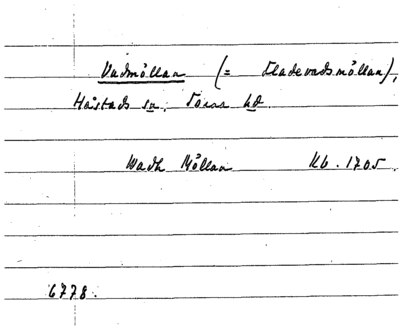 Vadmöllan (= Fladevadsmöllan),
Håstads sn. Torna hd.
Wadh Möllan Kb. 1705.
6778.